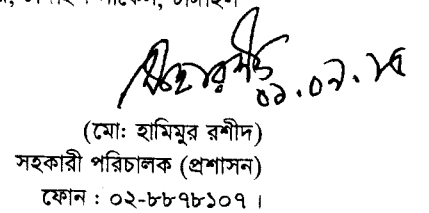 ০১.০৭.১৫
(মো: হামিমুর রশীদ)
সহকারী পরিচালক (প্রশাসন)
ফোন : ০২-৮৮৭৮১০৭ ।